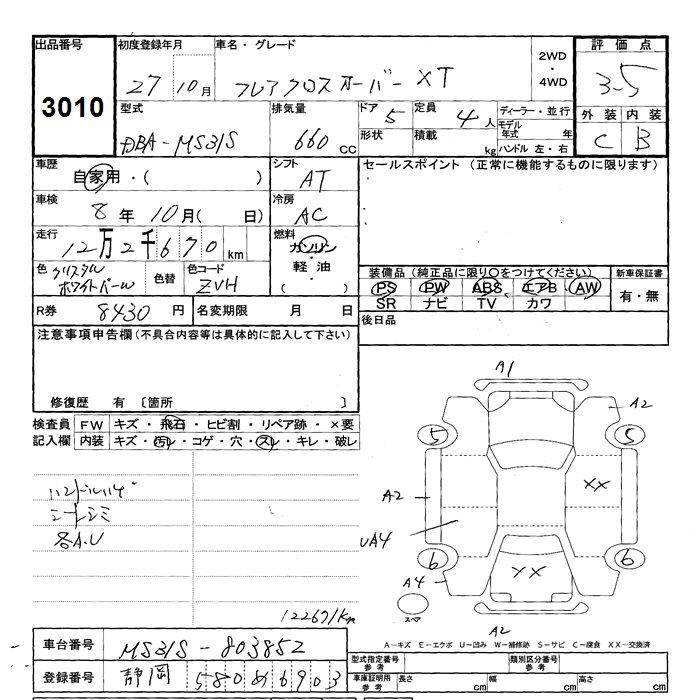 出品番号 初度登録年月 車名・グレード 2WD・4WD 評価点
3010 27 10月 フレアクロスオーバー XT 3-5
型式 排気量 ドア 5 定員 4人 ディーラー・並行 外装 内装
DBA-MS31S 660cc 形状 積載 kg モデル年式 年 ハンドル 左・右 C B
車歴 自家用・( ) シフト AT セールスポイント (正常に機能するものに限ります)
車検 8年 10月( 日) 冷房 AC
走行 12万2千670km 燃料 ガソリン・軽油・( )
色 クリスタルホワイトパール 色替 色コード ZVH
装備品 (純正品に限り○をつけてください) 新車保証書
PS PW ABS エアB AW 有・無
SR ナビ TV カワ
R券 8430円 名変期限 月 日 後日品
注意事項申告欄 (不具合内容等は具体的に記入して下さい)
修復歴 有 〔箇所 〕
検査員 FW キズ・飛石・ヒビ割・リペア跡・×要
記入欄 内装 キズ・汚レ・コゲ・穴・スレ・キレ・破レ
シートシミ
各A.U
122671km
A1
A2
5 5
XX
A2
UA4
6 6
XX
A4
スペア
A2
A-キズ E-エクボ U-凹み W-補修跡 S-サビ C-腐食 XX-交換済
車台番号 MS31S-803852
型式指定番号 参考 類別区分番号 参考
登録番号 静岡 580 あ 6903
車庫証明用 参考 長さ cm 幅 cm 高さ cm